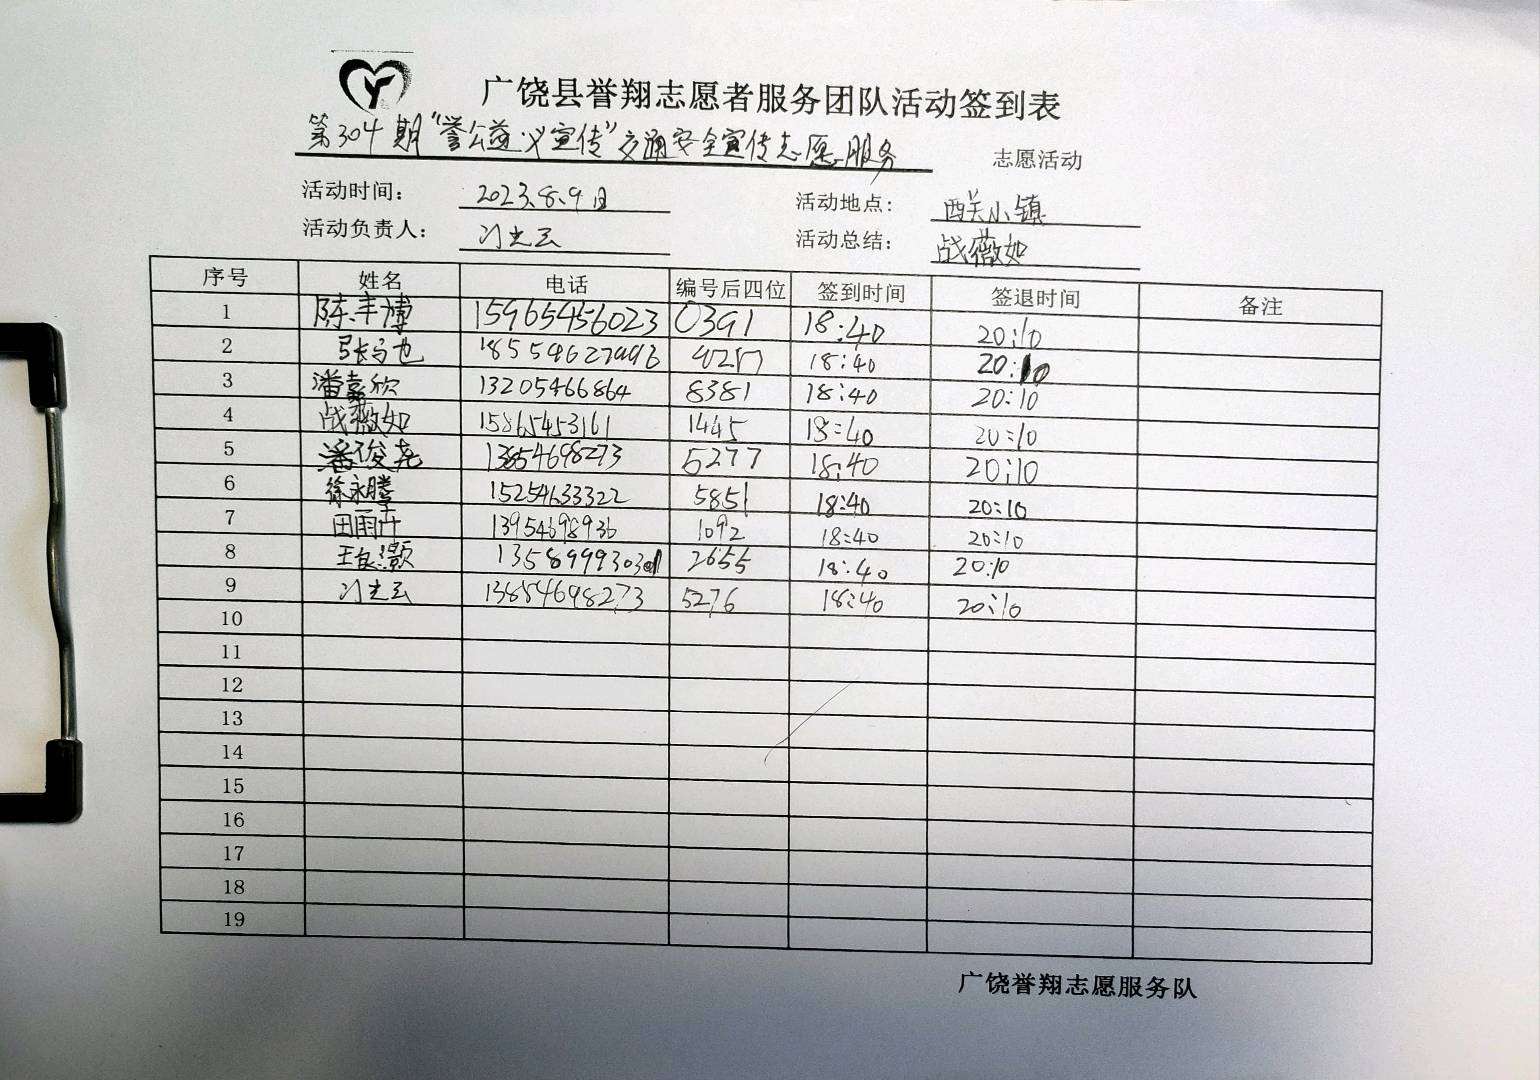 广饶县誉翔志愿者服务团队活动签到表
第304期“誉公益义宣传”交通安全宣传志愿服务 志愿活动
活动时间： 2023.8.9日 活动地点： 西关小镇
活动负责人： 活动总结： 战薇如
序号 姓名 电话 编号后四位 签到时间 签退时间 备注
1 陈丰博 15965456023 0391 18:40 20:10
2 18:40 20:10
3 潘嘉欣 13205466864 8381 18:40 20:10
4 战薇如 15865453161 1445 18:40 20:10
5 潘俊尧 13854698273 5277 18:40 20:10
6 徐永腾 15254633322 5851 18:40 20:10
7 田雨卉 13954698936 1092 18:40 20:10
8 王良灏 2655 18:40 20:10
9 13854698273 5276 18:40 20:10
10
11
12
13
14
15
16
17
18
19
广饶誉翔志愿服务队